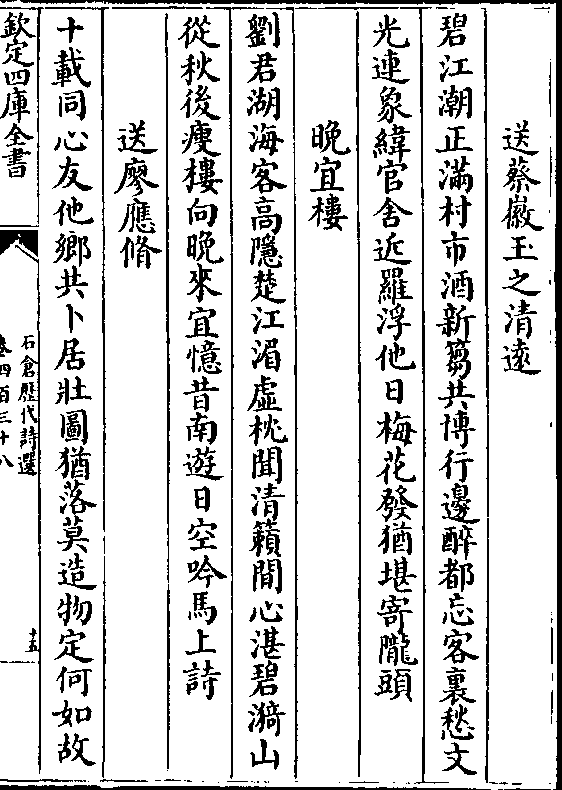 送蔡徽玉之清遠
碧江潮正滿村市酒新蒭共博行邊醉都忘客裏愁文
光連象緯官舍近羅浮他日梅花發猶堪寄隴頭
晩宜樓
劉君湖海客高隱楚江湄虛枕聞清籟閒心湛碧漪山
從秋後瘦樓向晩來宜憶昔南遊日空吟馬上詩
送廖應脩
十載同心友他鄉共卜居壯圖猶落莫造物定何如故
欽定四庫全書
石倉歷代詩選
卷四百三十八
十五